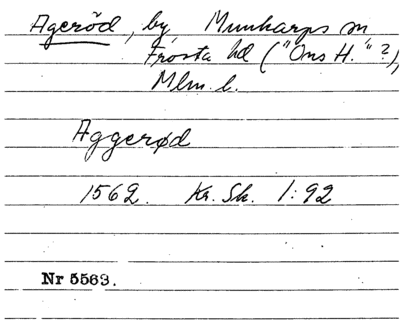 Ageröd, by, Munkarps sn
Frosta hd ("Ons H." ?),
Mlm. l.
Aggerød
1562. Kr. Sk. 1:92
Nr 5563.